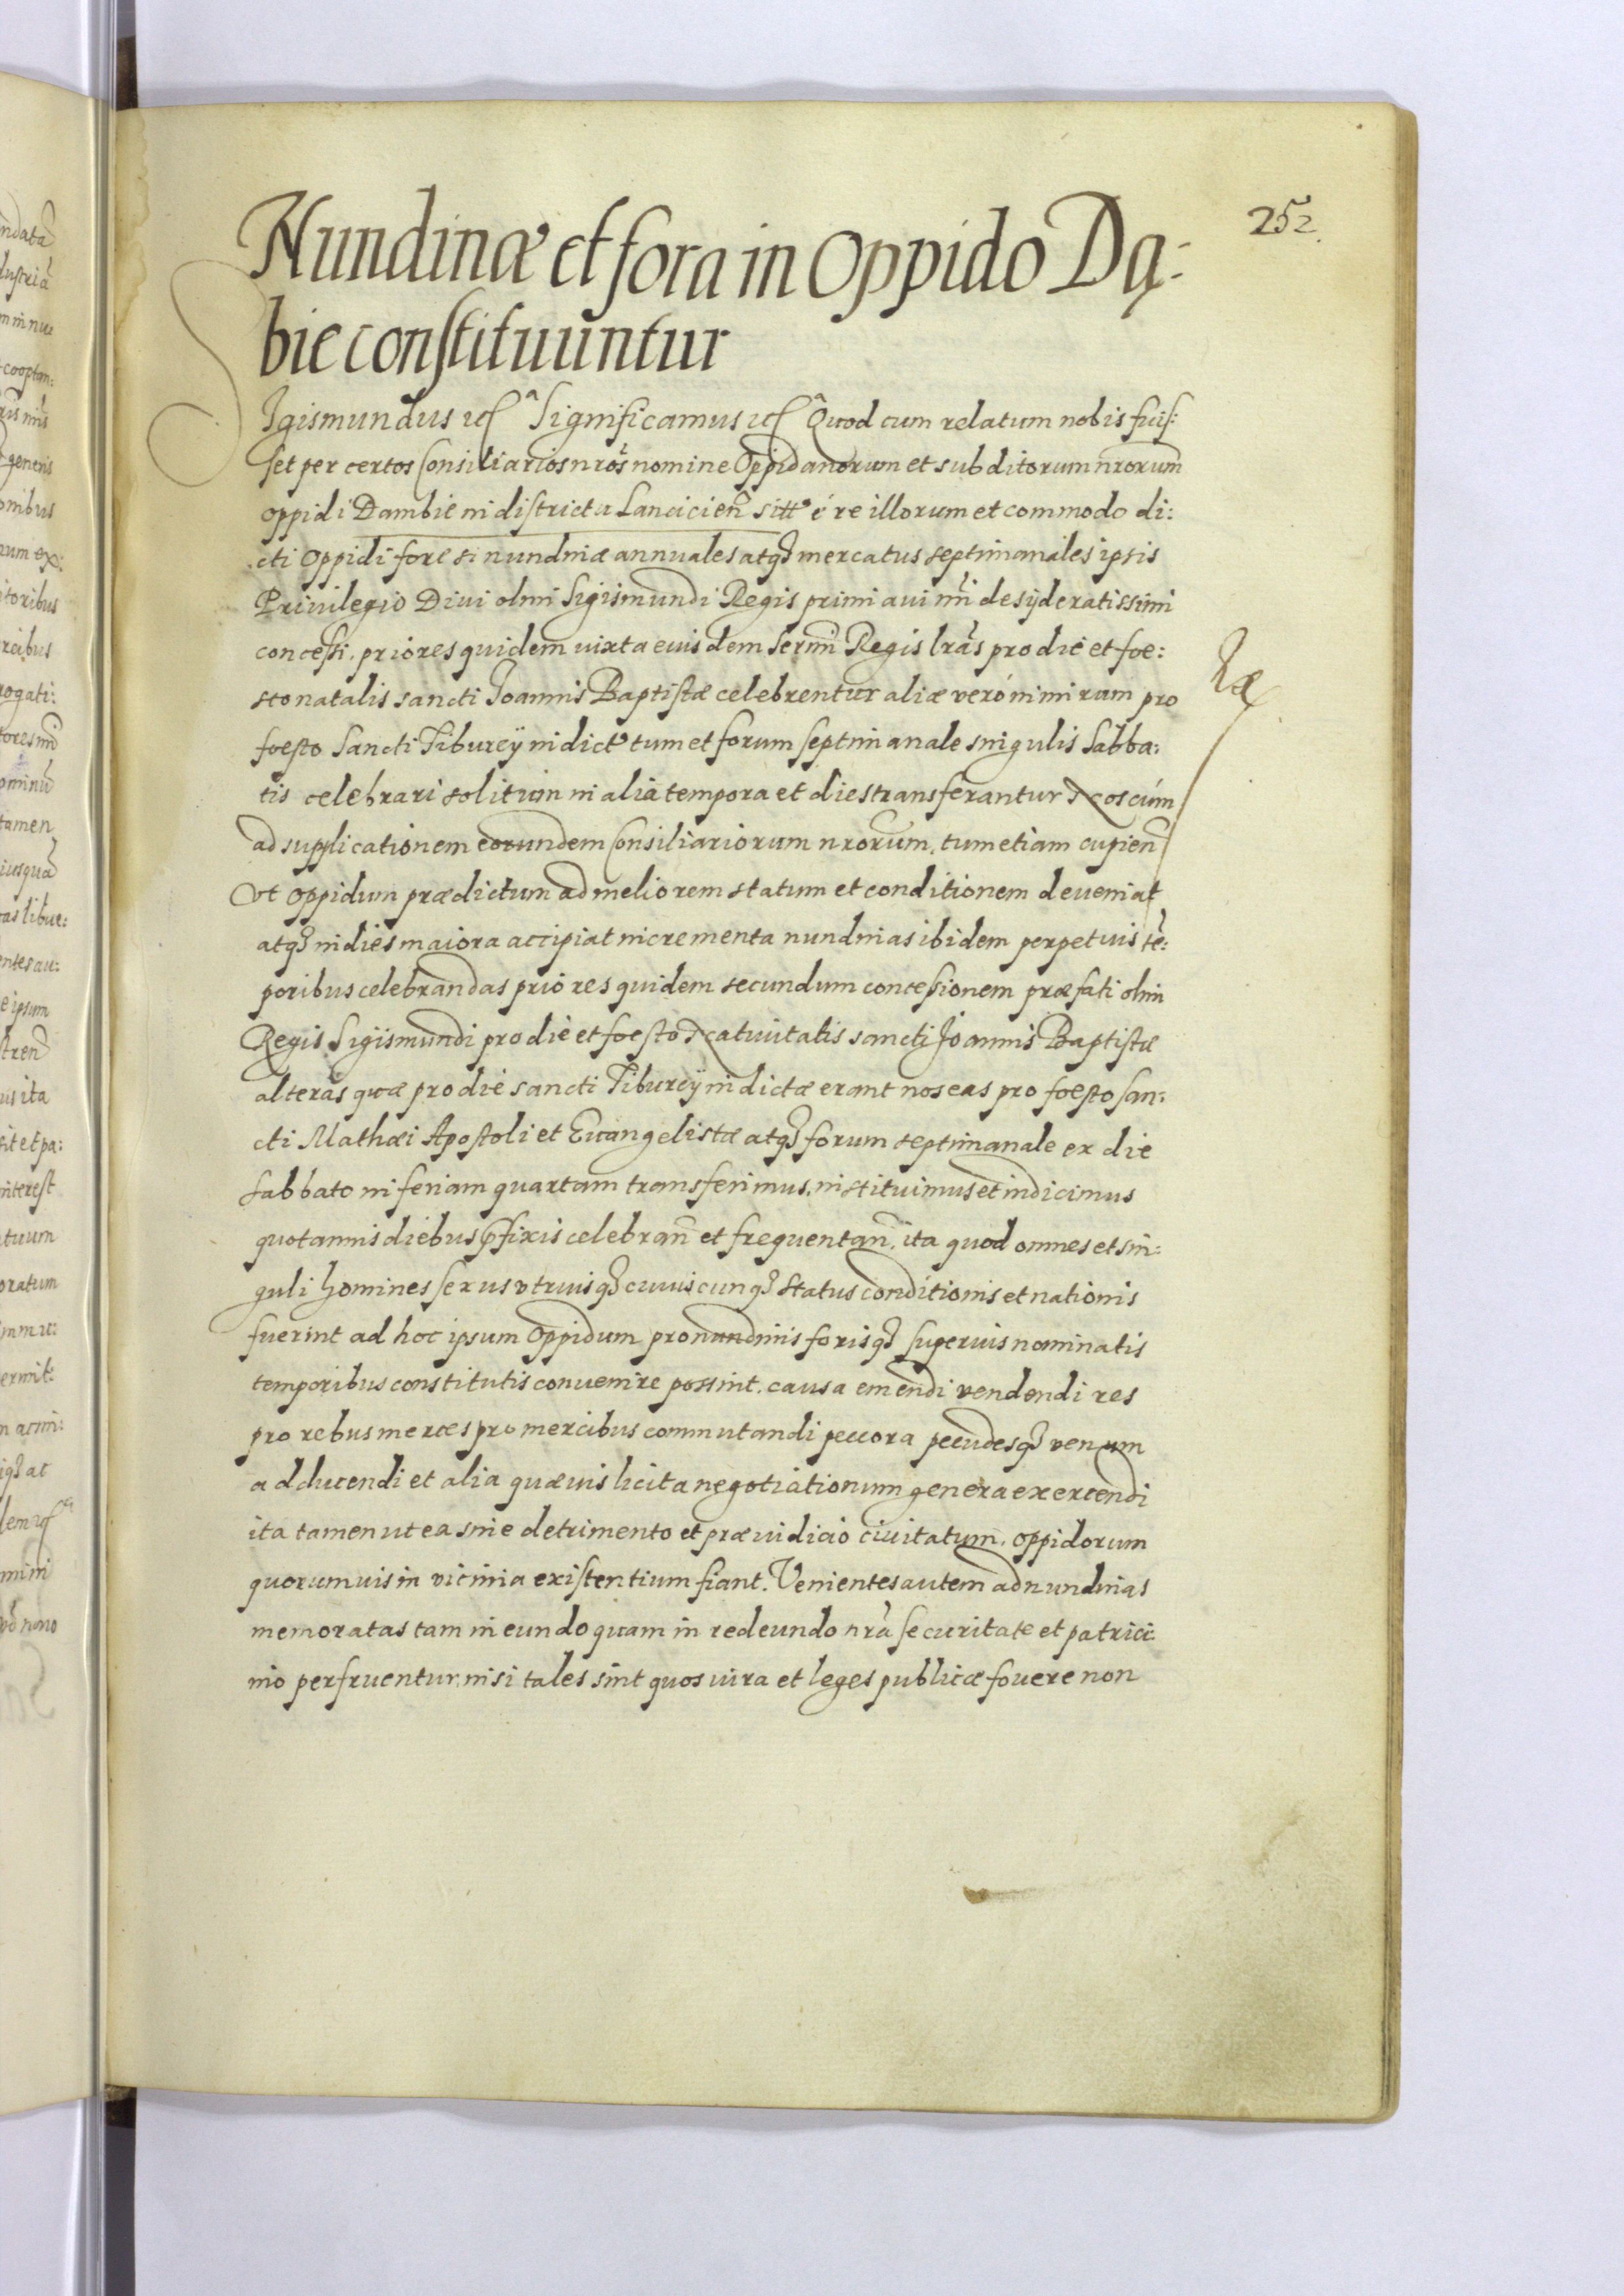 252.
Nundinæ et fora in Oppido Dą-
bie constituuntur
Sigismundus etc̃ Significamus etc̃ Quod cum relatum nobis fuis:
set per certos Consiliarios nr̃os nomine Oppidanorum et subditorum nr̃orum
oppidi Dambie in districtu Lanciciẽn sitt' é re illorum et commodo di:
cti oppidi fore si nundinæ annuales atq3 mercatus septimanales ipsis
Priuilegio Diui olim Sigismundi Regis primi aui nr̃i desyderatissimi
concessi. priores quidem iuxta eiusdem Serm̃i Regis lr̃as pro die et foe:
sto natalis sancti Joannis Baptistæ celebrentur aliæ veró nimirum pro
foesto Sancti Tiburcÿ indict' tum et forum septimanale singulis Sabba:
tis celebrari solitum in alia tempora et dies transferantur Nos cúm
ad supplicationem eorundem Consiliariorum nr̃orum. tum etiam cupieñ
Vt oppidum prædictum ad meliorem statum et conditionem deueniat
atq3 in dies maiora accipiat incrementa nundinas ibidem perpetuis tẽ:
poribus celebrandas priores quidem secundum concessionem præfati olim
Regis Sigismundi pro die et foesto Natiuitatis sancti Joannis Baptistæ
alteras quæ pro die sancti Tiburcÿ indictæ erant nos eas pro foesto san:
cti Mathæi Apostoli et Euangelistæ atq3 forum septimanale ex die
Sabbato in feriam quartam transferimus, instituimus et indicimus
quotannis diebus p̃fixis celebrañ et frequentañ. ita quod omnes et sin:
guli homines sexus vtriusq3 cuiuscunq3 status conditionis et nationis
fuerint ad hoc ipsum Oppidum pro nundinis forisq3 superius nominatis
temporibus constitutis conuenire possint. causa emendi vendendi res
pro rebus merces pro mercibus commutandi peccora pecudesq3 venum
adducendi et alia quæuis licita negotiationum genera exercendi
ita tamen ut ea sine detrimento et præiudicio ciuitatum. oppidorum
quorumuis in vicinia existentium fiant. Venientes autem ad nundinas
memoratas tam in eundo quam in redeundo nr̃a securitate et patrici:
nio perfruentur, nisi tales sint quos iura et leges publicæ fouere non